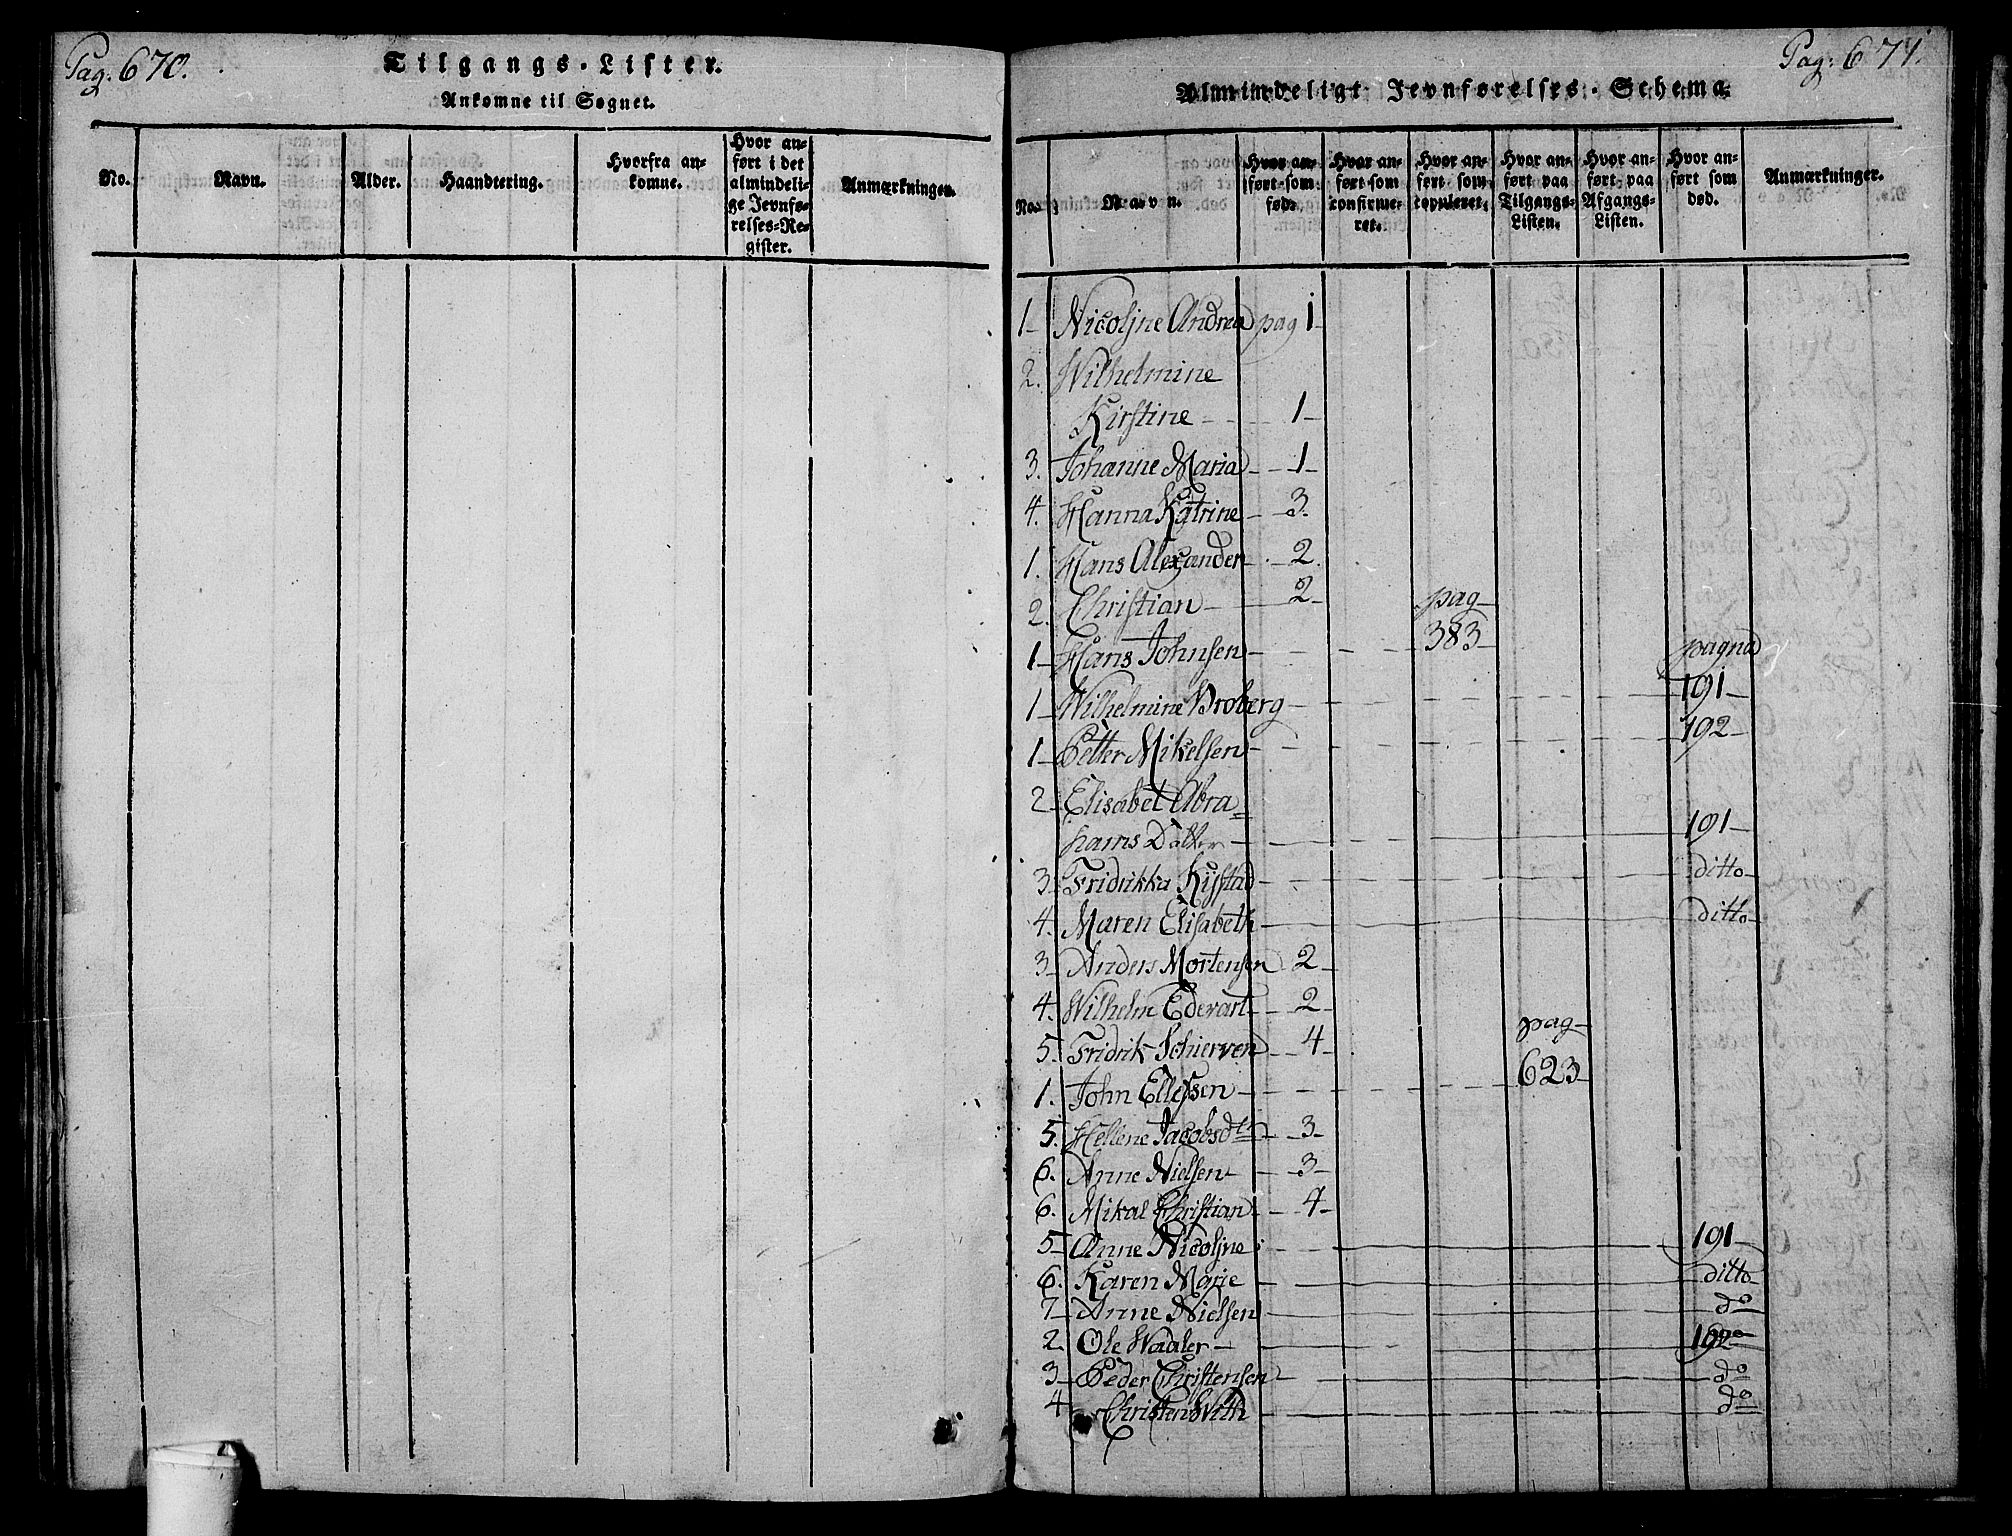 Pag. 670.
Tilgangs-Lister.
Ankomne til Sognet.
No. Navn. Alder. Haandtering. Hvorfra ankomne. Hvor anført i det almindelige Jevnførelses-Register. Anmærkninger.
Pag: 671.
Almindeligt Jevnførelses-Schema.
No. Navn. Hvor anført som født. Hvor anført som confirmeret. Hvor anført som copuleret. Hvor anført paa Tilgangs-Listen. Hvor anført paa Afgangs-Listen. Hvor anført som død. Anmærkninger.
1 Nicoljne Andrea pag 1
2. Wilhelmine
Kirstine 1
3. Johanne Maria 1
4. Hanna Katrine 3.
1. Hans Alexander 2
2. Christian 2
pag
1 Hans Johnsen 383
1 Wilhelmine Broberg 191
1 Petter Mikelsen 192
2 Elisabet Abra=
hams Datter 191
3. Fridrikka Kystad ditto
4. Maren Elisabeth ditto
3 Anders Mortensen 2
4. Wilhelm Edevart 2
5. Fridrik Schierven 4
pag
1. John Ellefsen 623
5. Hellene Jacobsdtr 3
6. Anne Nielsen 3
6. Mikal Christian 4
5 Anne Nicoljne 191
6. Karen Marje ditto
7 Anne Nielsen do
2. Ole Waaler 192
3 Peder Christensen do
4 Christen With do